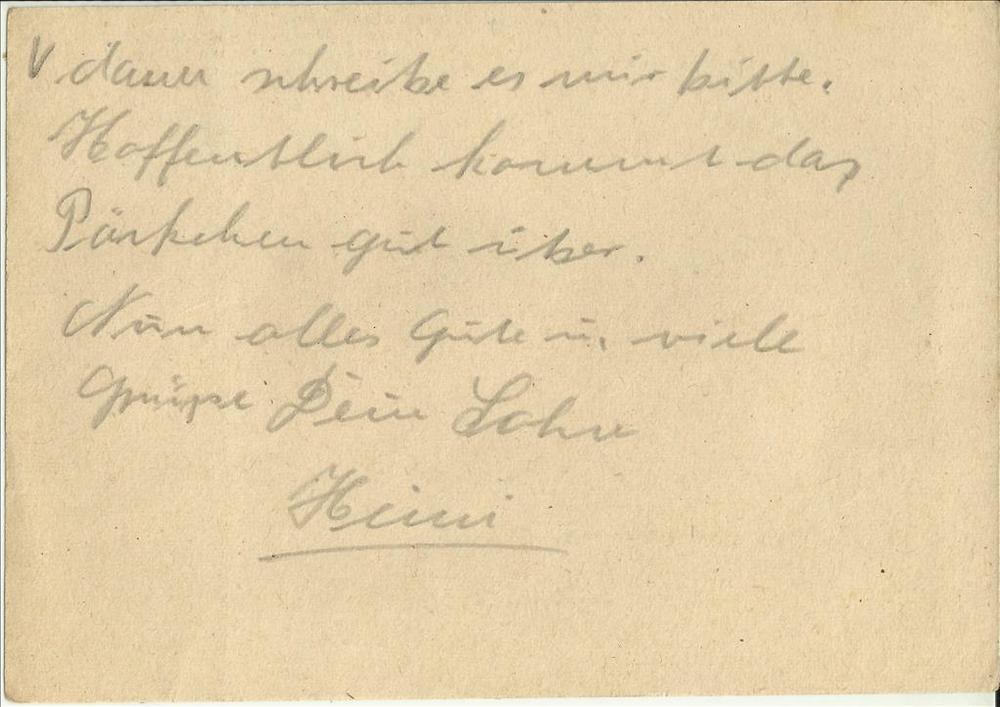 V dann schreibe es mir bitte.
Hoffentlich kommt das
Päckchen gut über.
Nun alles Gute u. viele
Grüße Dein Sohn
Heini